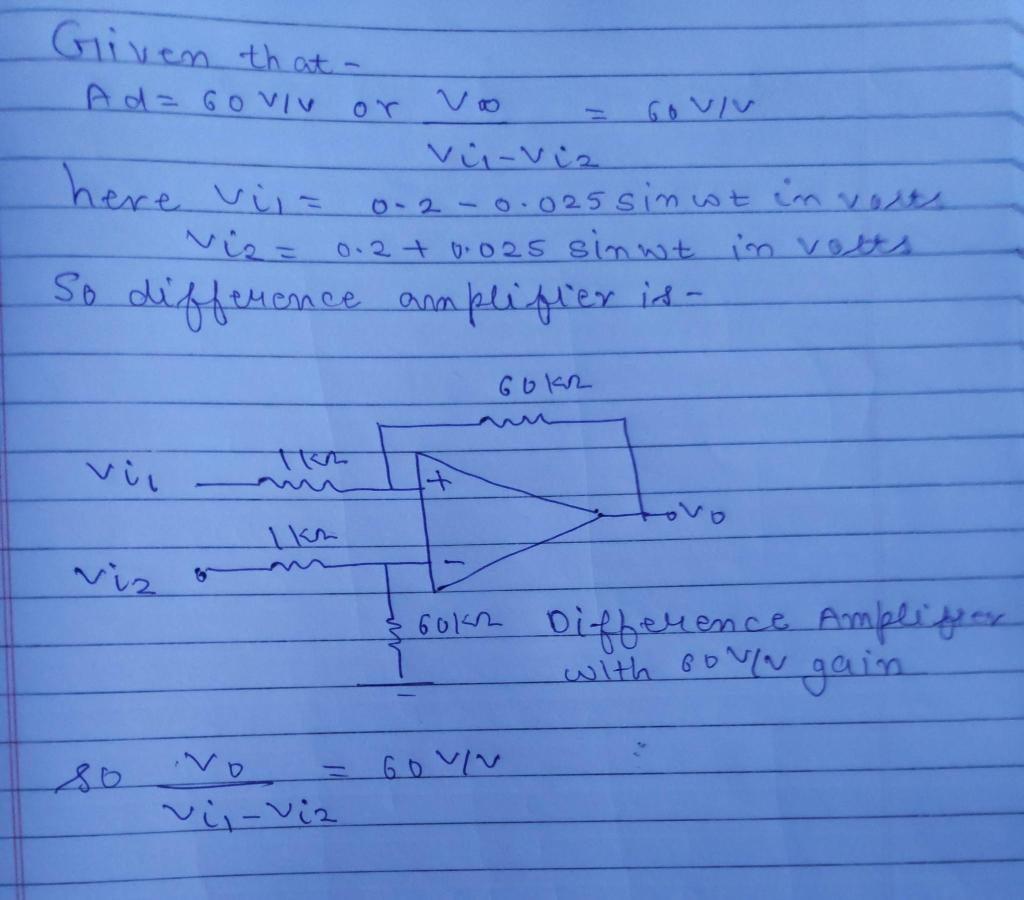 Given that -
Ad = 60 V/V or Vo = 60 V/V
Vi1 - Vi2
here Vi1 = 0.2 - 0.025 sin wt in volts
Vi2 = 0.2 + 0.025 sin wt in volts
So difference amplifier is -
60 KΩ
Vi1 1KΩ +
Vo
1KΩ
Vi2 -
60KΩ Difference Amplifier
with 60 V/V gain
so Vo = 60 V/V
Vi1 - Vi2